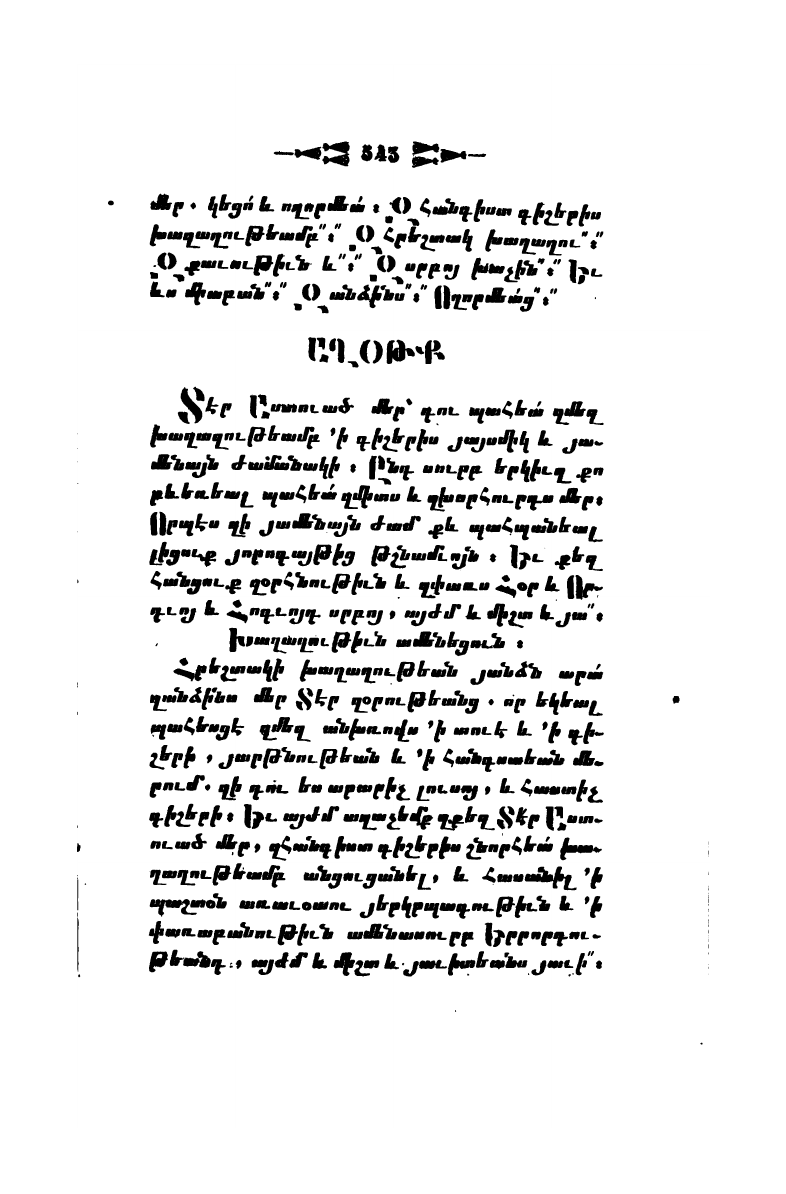 545
մեր . կեցո՛ և ողորմեա՛ ։ Զ Հանգիստ գիշերիս
խաղաղութեամբ՞։՞ Զ Հրեշտակ խաղաղու՞։՞
Զ քաւութիւն և՞։՞ Զ սրբոյ խաչին՞։՞ Եւ
ևս միաբան՞։՞ Զ անձինս՞։՞ Ողորմեաց՞։՞
ԱՂՕԹՔ
Տէր Աստուած մեր՝ դու պահեա՛ զմեզ
խաղաղութեամբ ՚ի գիշերիս յայսմիկ և յա-
մենայն ժամանակի ։ Ընդ սուրբ երկիւղ քո
բևեռեալ պահեա՛ զմիտս և զխորհուրդս մեր։
Որպէս զի յամենայն ժամ քև պահպանեալ
լիցուք յորոգայթից թշնամւոյն ։ Եւ քեզ
Հանցուք զօրհնութիւն և զփառս Հօր և Որ-
դւոյ և Հոգւոյդ սրբոյ , այժմ և միշտ և յա՞։
Խաղաղութիւն ամենեցուն ։
Հրեշտակի խաղաղութեան յանձն արա՛
զանձինս մեր Տէր զօրութեանց . որ եկեալ
պահեսցէ զմեզ անխռովս ՚ի տուէ և ՚ի գի-
շերի , յարթնութեան և ՚ի Հանգստեան մե-
րում . զի դու ես արարիչ լուսոյ , և Հաստիչ
գիշերի ։ Եւ այժմ աղաչեմք զքեզ Տէր Աստ-
ուած մեր , զՀանգիստ գիշերիս շնորհեա՛ խա-
ղաղութեամբ անցուցանել , և Հասանիլ ՚ի
պաշտօն առաւօտու յերկրպագութիւն և ՚ի
փառաբանութիւն ամենասուրբ Երրորդու-
թեանդ , այժմ և միշտ և յաւիտեանս յաւի՞։